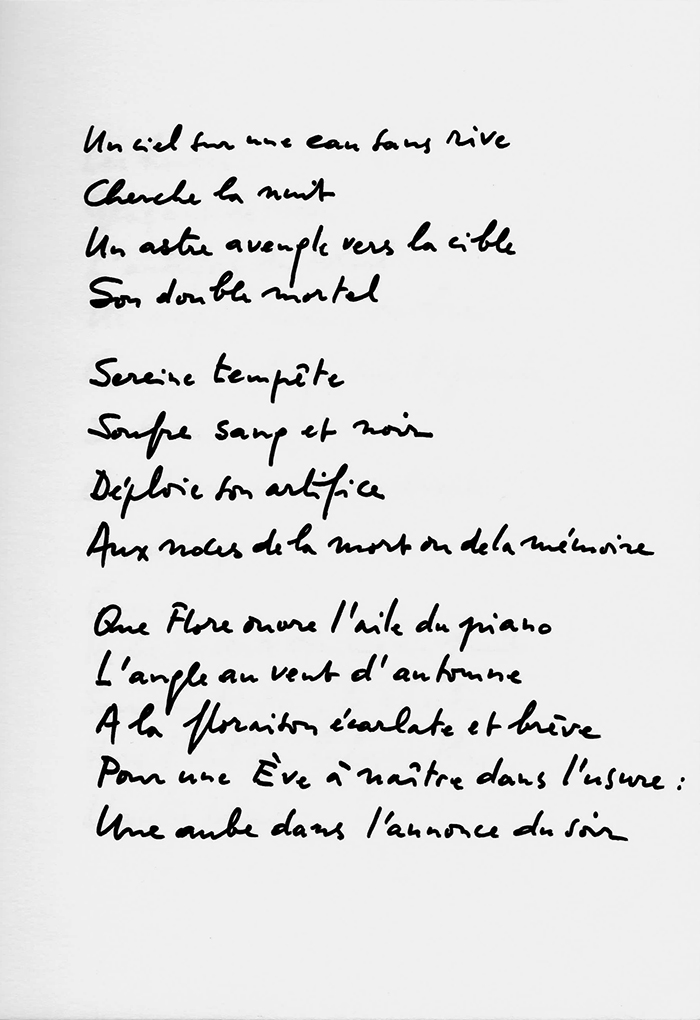 Un ciel sur une eau sans rive
Cherche la nuit
Un astre aveugle vers la cible
Son double mortel
Sereine tempête
Soufre sang et noir
Déploie son artifice
Aux noces de la mort ou de la mémoire
Que Flore ouvre l'aile du piano
L'angle au vent d'automne
A la floraison écarlate et brève
Pour une Ève à naître dans l'usure :
Une aube dans l'annonce du soir